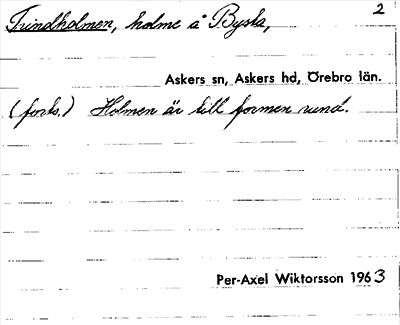 2
Trindholmen, holme å Bysta,
Askers sn, Askers hd, Örebro län.
(forts.) Holmen är till formen rund.
Per-Axel Wiktorsson 1963